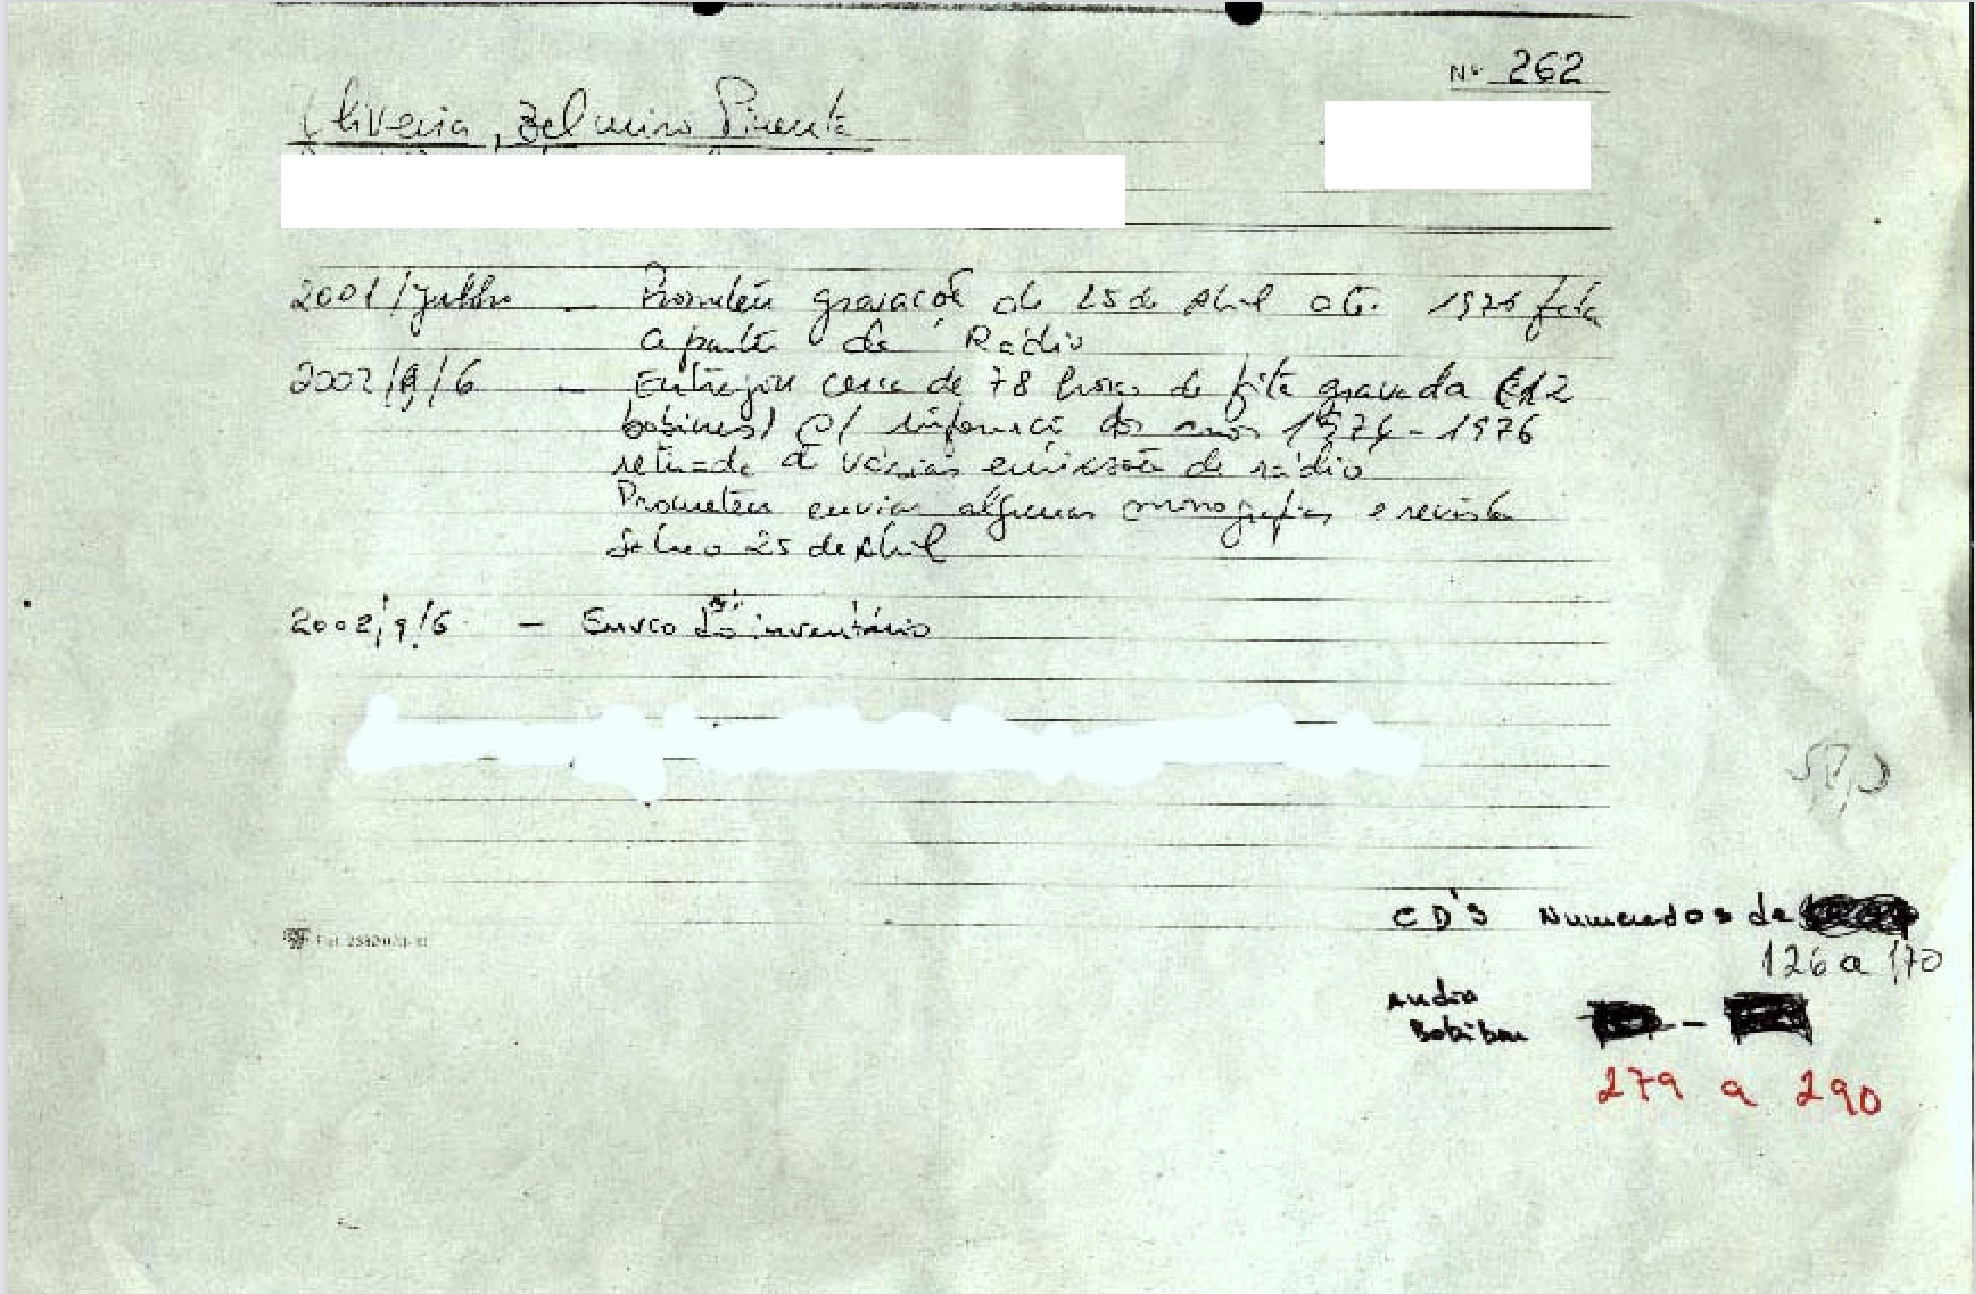 Nº 262
Oliveira, Belmiro Pimenta
2001/Julho – Prometeu gravação do 25 de Abril até 1976 feita
a partir da Rádio
2002/9/6 – Entregou cerca de 78 horas de fita gravada (12
bobines) c/ informação dos anos 1974-1976
retirada de várias emissões de rádio
Prometeu enviar algumas monografias e revistas
sobre o 25 de Abril
2002/9/6 – Envio do inventário
CD's Numerados de
126 a 170
Audio
Bobibes –
279 a 290